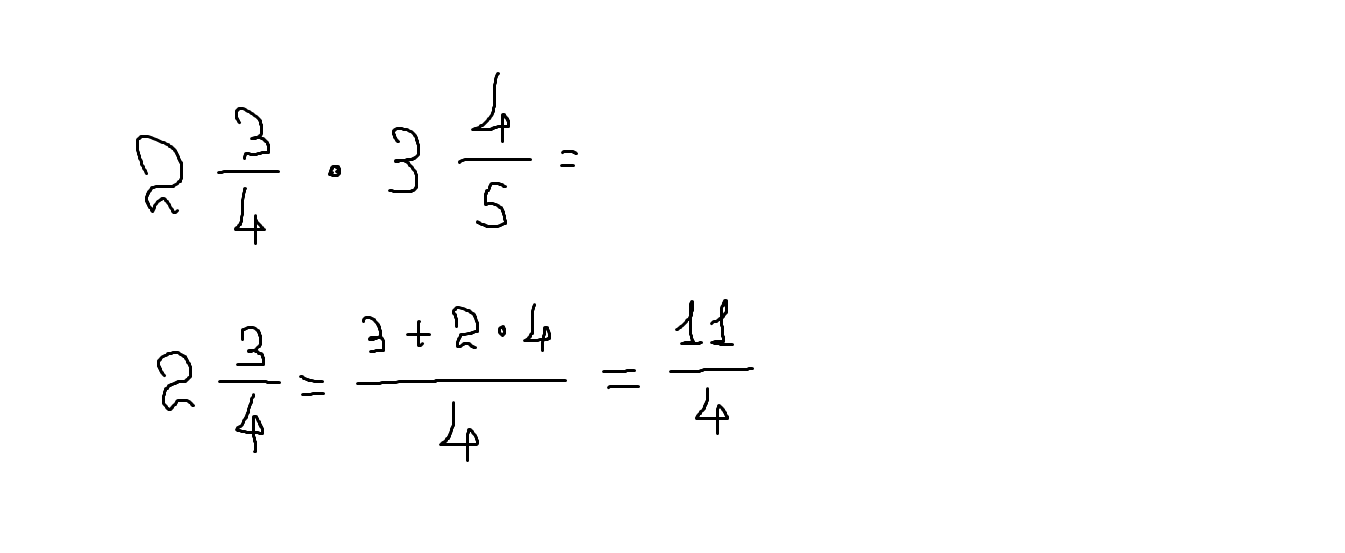 2 3/4 · 3 4/5 =
2 3/4 = (3 + 2 · 4)/4 = 11/4